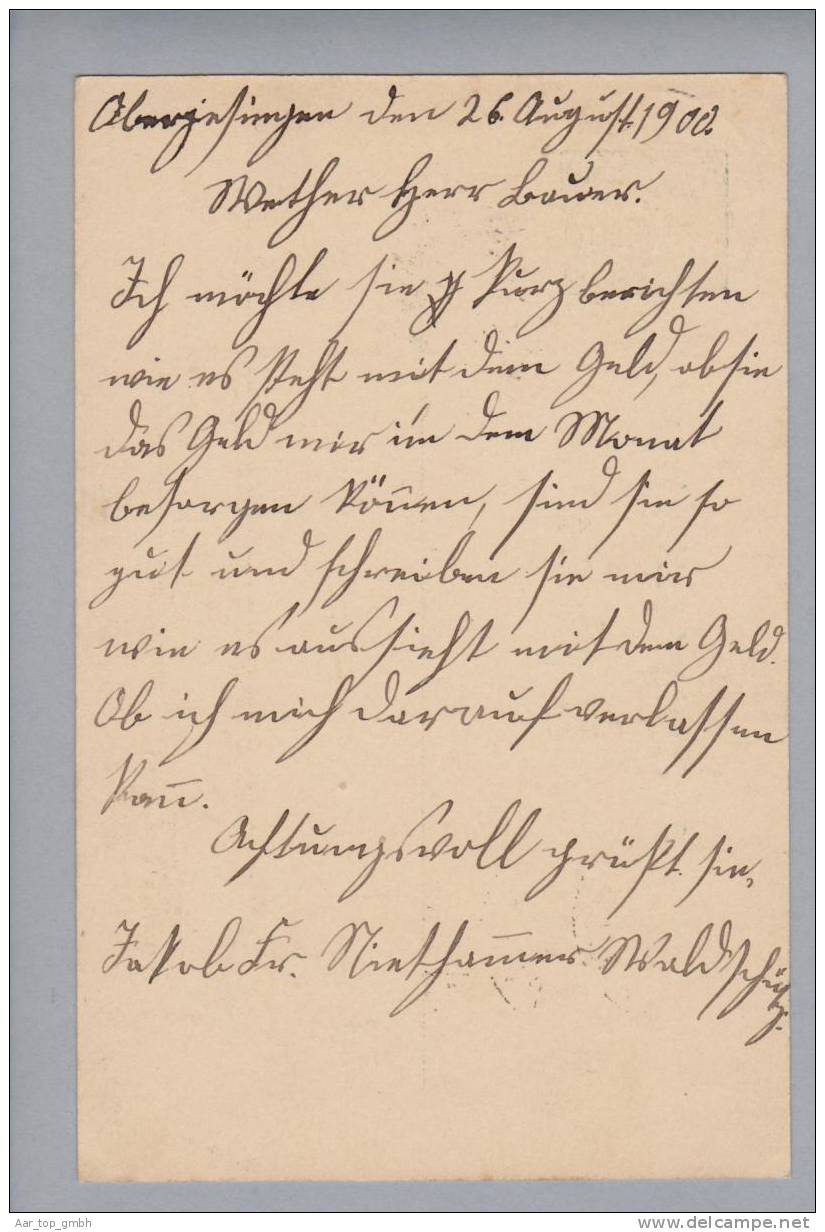 Oberjesingen den 26. August 1900.
Werther Herr Bauer.
Ich möchte sie kurz berichten
wie es steht mit dem Geld, ob sie
das Geld mir im dem Monat
besorgen kön̄en, sind sie so
gut und schreiben sie mir
wie es aussieht mit dem Geld.
Ob ich mich darauf verlassen
kan̄.
Achtungsvoll grüßt sie,
Jakob Fr. Nietham̄er Waldschütz.
Aar_top_gmbh
www.delcampe.net